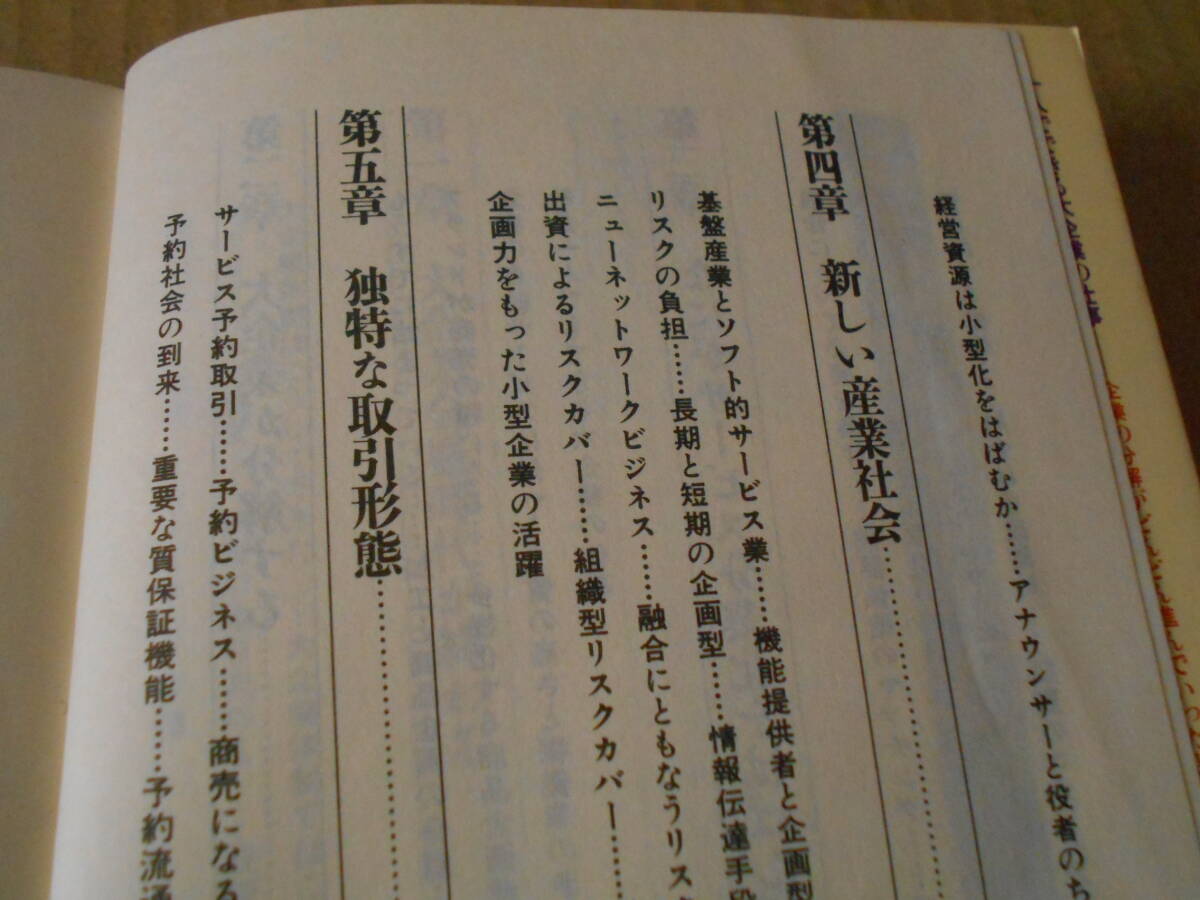 経営資源は小型化をはばむか……アナウンサーと役者のち
第四章 新しい産業社会……………
基盤産業とソフト的サービス業……機能提供者と企画型
リスクの負担……長期と短期の企画型……情報伝達手段
ニューネットワークビジネス……融合にともなうリス
出資によるリスクカバー……組織型リスクカバー……
企画力をもった小型企業の活躍
第五章 独特な取引形態……………
サービス予約取引……予約ビジネス……商売になる
予約社会の到来……重要な質保証機能……予約流通